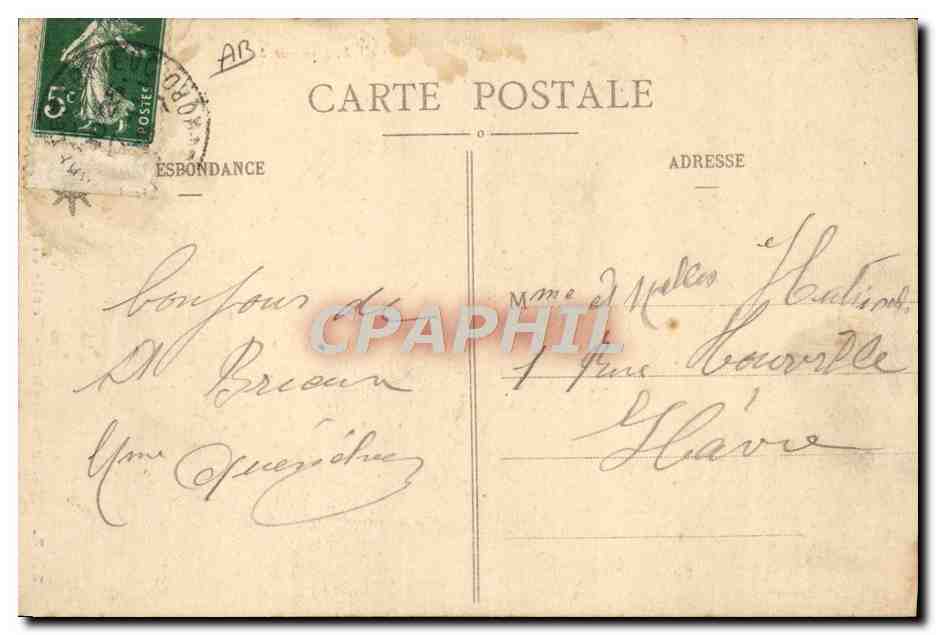 5c
POSTES
AB
CARTE POSTALE
ESPONDANCE
ADRESSE
bonjour de
St Brieuc
Mme
Mme et Melles
1 Rue Tourville
Hâvre
CPAPHIL